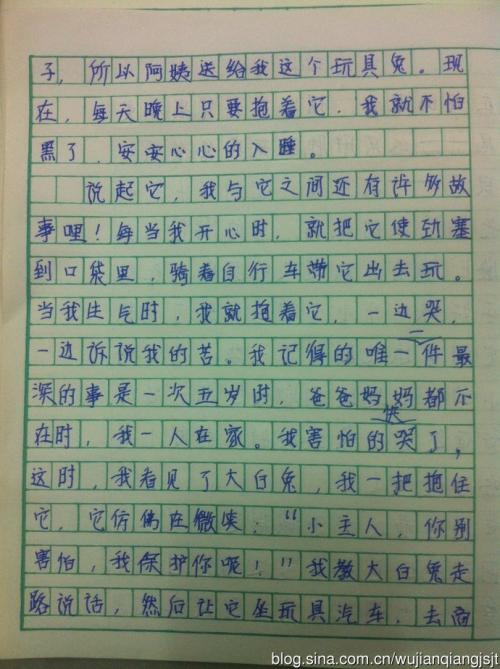 子，所以阿姨送给我这个玩具兔。现
在，每天晚上只要抱着它，我就不怕
黑了，安安心心的入睡。
说起它，我与它之间还有许多故
事哩！每当我开心时，就把它使劲塞
到口袋里，骑着自行车带它出去玩。
当我生气时，我就抱着它，一边哭，
一边诉说我的苦。我记得的唯一件最
深的事是一次五岁时，爸爸妈妈都不
在时，我一人在家。我害怕的快哭了，
这时，我看见了大白兔，我一把抱住
它，它仿佛在微笑：“小主人，你别
害怕，我保护你呢！”我教大白兔走
路说话，然后让它坐玩具汽车，去商
blog.sina.com.cn/wujianqiangjsjt